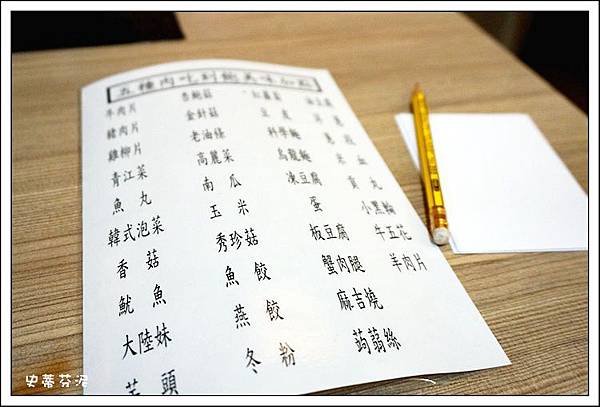 五種肉吃到飽美味加點
牛肉片 杏鮑菇
豬肉片 金針菇 豆皮
雞柳片 老油條 科學麵
青江菜 高麗菜 烏龍麵 米血
魚丸 南瓜 凍豆腐 貢丸
韓式泡菜 玉米 蛋 小黑輪
香菇 秀珍菇 板豆腐 牛五花
魷魚 魚餃 蟹肉腿 羊肉片
大陸妹 燕餃 麻吉燒
芋頭 冬粉 蒟蒻絲
史蒂芬泥